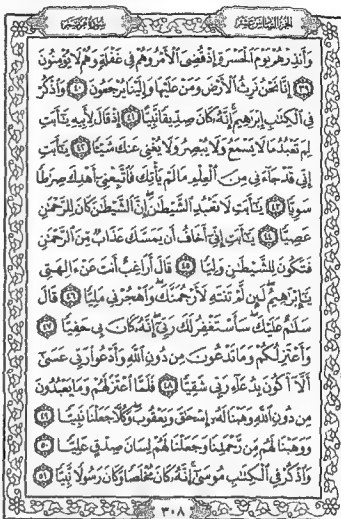 الجزء السادس عشر
سورة مريم
وَأَنذِرْهُمْ يَوْمَ الْحَسْرَةِ إِذْ قُضِيَ الْأَمْرُ وَهُمْ فِي غَفْلَةٍ وَهُمْ لَا يُؤْمِنُونَ
﴿٣٩﴾ إِنَّا نَحْنُ نَرِثُ الْأَرْضَ وَمَنْ عَلَيْهَا وَإِلَيْنَا يُرْجَعُونَ ﴿٤٠﴾ وَاذْكُرْ
فِي الْكِتَٰبِ إِبْرَٰهِيمَ إِنَّهُ كَانَ صِدِّيقًا نَّبِيًّا ﴿٤١﴾ إِذْ قَالَ لِأَبِيهِ يَٰٓأَبَتِ
لِمَ تَعْبُدُ مَا لَا يَسْمَعُ وَلَا يُبْصِرُ وَلَا يُغْنِي عَنكَ شَيْئًا ﴿٤٢﴾ يَٰٓأَبَتِ
إِنِّي قَدْ جَآءَنِي مِنَ الْعِلْمِ مَا لَمْ يَأْتِكَ فَاتَّبِعْنِي أَهْدِكَ صِرَٰطًا
سَوِيًّا ﴿٤٣﴾ يَٰٓأَبَتِ لَا تَعْبُدِ الشَّيْطَٰنَ إِنَّ الشَّيْطَٰنَ كَانَ لِلرَّحْمَٰنِ
عَصِيًّا ﴿٤٤﴾ يَٰٓأَبَتِ إِنِّي أَخَافُ أَن يَمَسَّكَ عَذَابٌ مِّنَ الرَّحْمَٰنِ
فَتَكُونَ لِلشَّيْطَٰنِ وَلِيًّا ﴿٤٥﴾ قَالَ أَرَاغِبٌ أَنتَ عَنْ ءَالِهَتِي
يَٰٓإِبْرَٰهِيمُ لَئِن لَّمْ تَنتَهِ لَأَرْجُمَنَّكَ وَاهْجُرْنِي مَلِيًّا ﴿٤٦﴾ قَالَ
سَلَٰمٌ عَلَيْكَ سَأَسْتَغْفِرُ لَكَ رَبِّي إِنَّهُ كَانَ بِي حَفِيًّا ﴿٤٧﴾
وَأَعْتَزِلُكُمْ وَمَا تَدْعُونَ مِن دُونِ اللَّهِ وَأَدْعُوا رَبِّي عَسَىٰٓ
أَلَّآ أَكُونَ بِدُعَآءِ رَبِّي شَقِيًّا ﴿٤٨﴾ فَلَمَّا اعْتَزَلَهُمْ وَمَا يَعْبُدُونَ
مِن دُونِ اللَّهِ وَهَبْنَا لَهُ إِسْحَٰقَ وَيَعْقُوبَ وَكُلًّا جَعَلْنَا نَبِيًّا ﴿٤٩﴾
وَوَهَبْنَا لَهُم مِّن رَّحْمَتِنَا وَجَعَلْنَا لَهُمْ لِسَانَ صِدْقٍ عَلِيًّا ﴿٥٠﴾
وَاذْكُرْ فِي الْكِتَٰبِ مُوسَىٰٓ إِنَّهُ كَانَ مُخْلَصًا وَكَانَ رَسُولًا نَّبِيًّا ﴿٥١﴾
٣٠٨